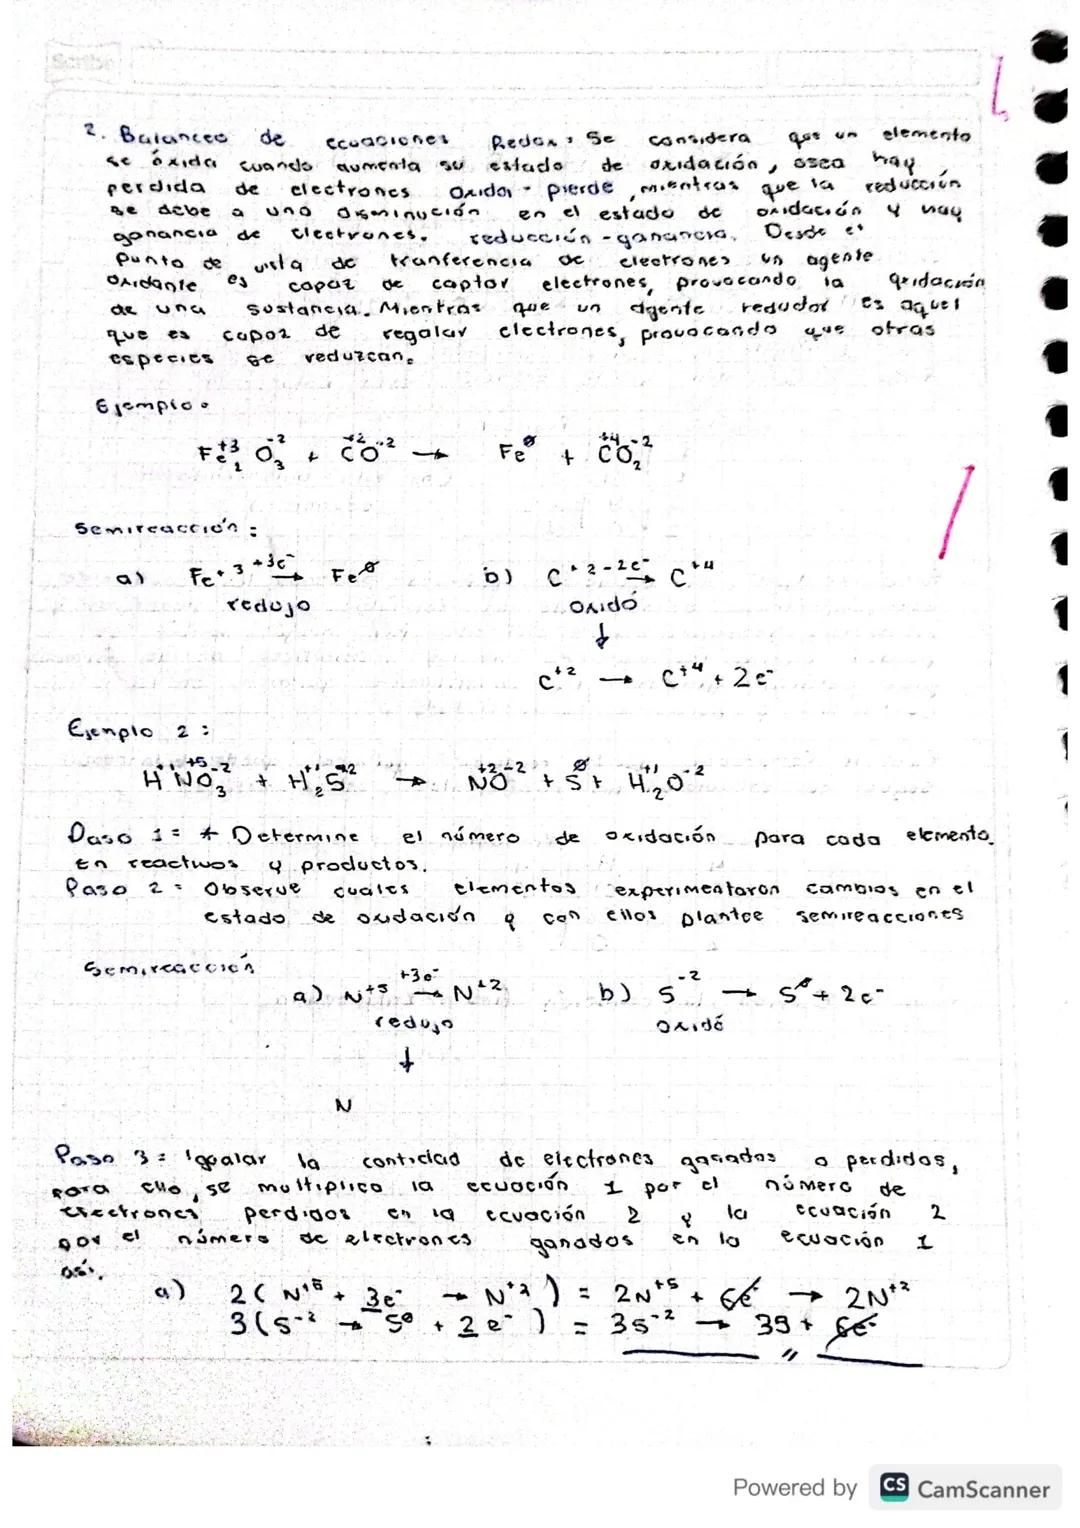 Scribe
2. Balanceo de ecuaciones Redox: Se considera que un elemento
se óxida cuando aumenta su estado de oxidación, osea hay
perdida de electrones oxidar - pierde, mientras que la reducción
se debe a una disminución en el estado de oxidación y hay
ganancia de electrones. reducción - ganancia. Desde el
punto de vista de tranferencia de electrones un agente
oxidante es capaz de captar electrones, provocando la oxidación
de una sustancia. Mientras que un agente redudor es aquel
que es capaz de regalar electrones, provocando que otras
especies se reduzcan.
Ejemplo:
Fe₂⁺³ O₃⁻² + C⁺²O⁻² → Fe⁰ + C⁺⁴O₂⁻²
Semireacción:
a) Fe⁺³ +3e⁻ → Fe⁰ b) C⁺² -2e⁻ → C⁺⁴
redujo oxidó
↓
C⁺² → C⁺⁴ + 2e⁻
Ejemplo 2:
H⁺¹N⁺⁵O₃⁻² + H₂⁺¹S⁻² → N⁺²O⁻² + S⁰ + H₂⁺¹O⁻²
Paso 1: * Determine el número de oxidación para cada elemento
en reactivos y productos.
Paso 2: Observe cuales elementos experimentaron cambios en el
estado de oxidación y con ellos plantee semireacciones
Semireacción
a) N⁺⁵ +3e⁻ → N⁺² b) S⁻² → S⁰ + 2e⁻
redujo oxidó
↓
N
Paso 3: Igualar la cantidad de electrones ganados o perdidos,
para ello, se multiplica la ecuación 1 por el número de
electrones perdidos en la ecuación 2 y la ecuación 2
por el número de electrones ganados en la ecuación 1
así.
a) 2(N⁺⁵ + 3e⁻ → N⁺²) = 2N⁺⁵ + 6e⁻ → 2N⁺²
3(S⁻² → S⁰ + 2e⁻) = 3S⁻² → 3S + 6e⁻
Powered by CS CamScanner